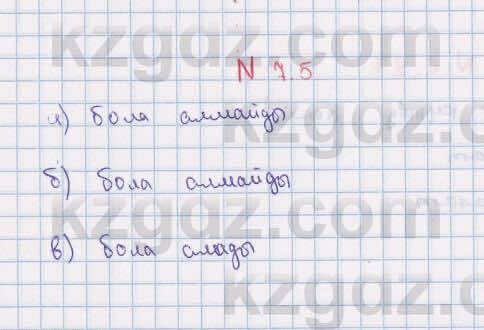 kzgaz.com
N 7.5
а) бола алмайды
kzgaz.com
б) бола алмайды
kzgaz.com
в) бола алады
kzgaz.com